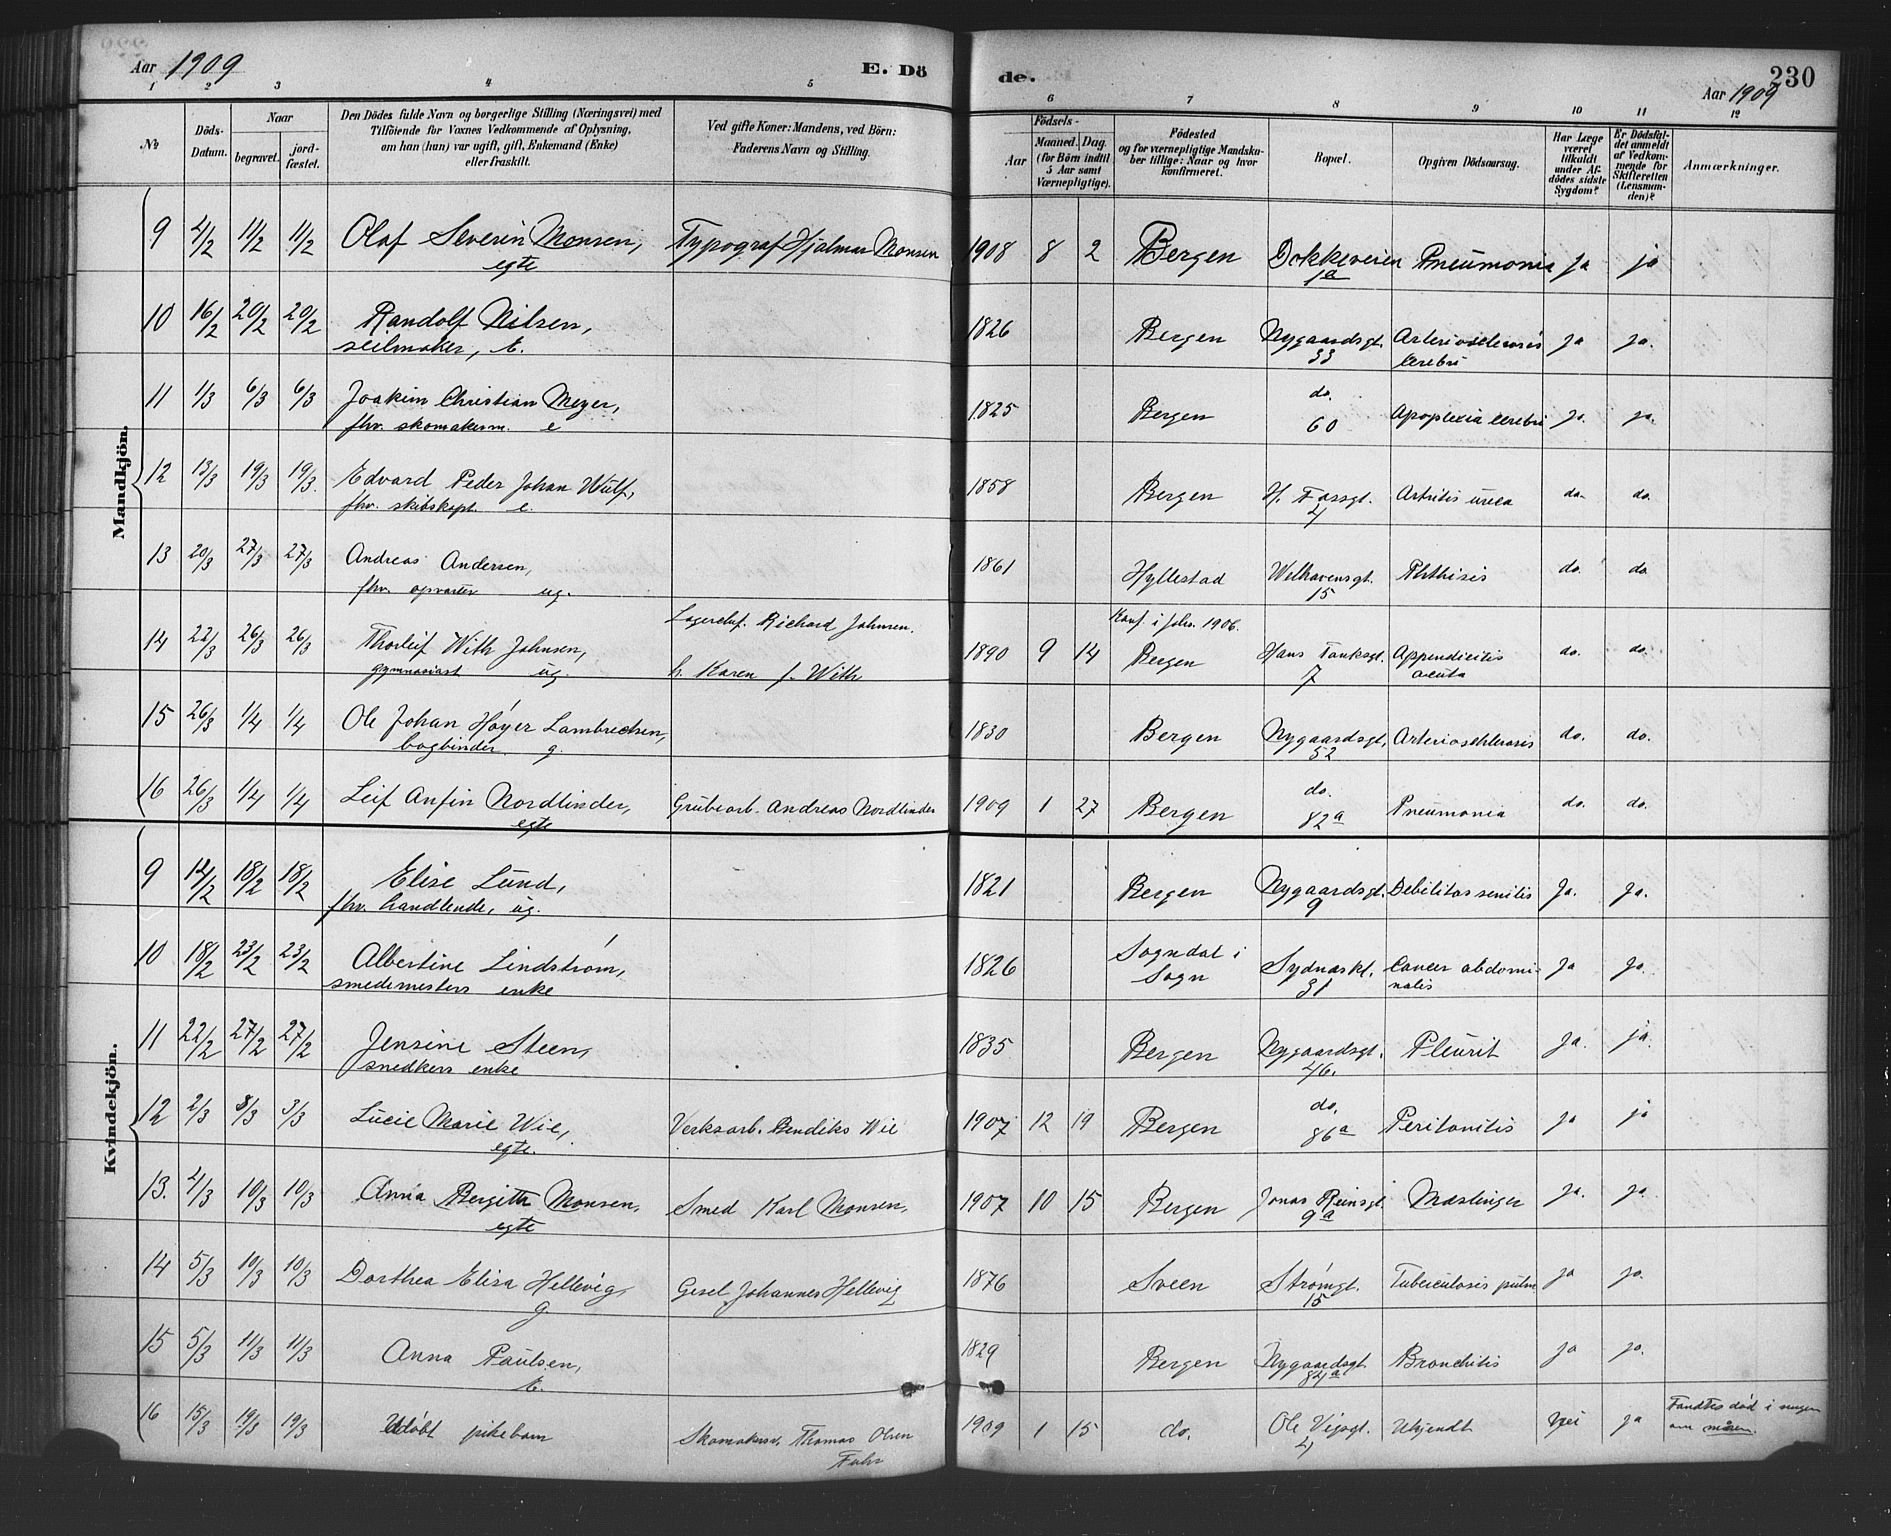 Aar 1909
E. Dö
de.
230
Aar 1909
1 2 3 4 5 6 7 8 9 10 11 12
No
Döds-Datum.
Naar
begravet.
jord-fæstet.
Den Dödes fulde Navn og borgerlige Stilling (Næringsvei) med
Tilföiende for Voxnes Vedkommende af Oplysning,
om han (hun) var ugift, gift, Enkemand (Enke)
eller fraskilt.
Ved gifte Koner: Mandens, ved Börn:
Faderens Navn og Stilling.
Födsels-
Aar
Maaned. Dag.
(for Börn indtil
5 Aar samt
Værnepligtige).
Födested
og for værnepligtige Mandska-
ber tillige: Naar og hvor
konfirmeret.
Bopæl.
Opgiven Dödsaarsag.
Har Læge
været
tilkaldt
under Af-
dödes sidste
Sygdom?
Er Dödsfal-
det anmeldt
af Vedkom-
mende for
Skifteretten
(Lensman-
den)?
Anmærkninger.
Mandkjön.
9 4/2 11/2 11/2 Olaf Severin Monsen, Typograf Hjalmar Monsen 1908 8 2 Bergen Dokkeveien Pneumonia ja ja
egte 1a
10 16/2 20/2 20/2 Randolf Nilsen, 1826 Bergen Nygaardsgt. Arteriosclerosis ja ja.
seilmaker, E. 33 cerebri
11 1/3 6/3 6/3 Joakim Christian Meyer, 1825 Bergen do. Apoplexia cerebri ja. ja.
fhv. skomakerm. e 60
12 13/3 19/3 19/3. Edvard Peder Johan Wulf, 1858 Bergen H. Fassgt. Artritis urica do. do.
fhv. skibskapt. e. 4
13 20/3 27/3 27/3 Andreas Andersen, 1861 Hyllestad Welhavensgt. Phthisis do. do.
fhv. opvarter ug. 15
Lagerchf. Richard Johnsen. Konf. i Johs. 1906.
14 22/3 26/3 26/3 Thorleif With Johnsen, 1890 9 14 Bergen Hans Tanksgt. Appendicitis do. do.
gymnasiast ug. h. Karen f. With 7 acuta
15 26/3 1/4 1/4 Ole Johan Høyer Lambrechsen, 1830 Bergen Nygaardsgt. Arteriosclerosis do. do.
bogbinder g. 52
16 26/3 1/4 1/4 Leif Anfin Nordlinder, Grubearb. Andreas Nordlinder 1909 1 27 Bergen do. Pneumonia do. do.
egte 82a
Kvindekjön.
9 14/2 18/2 18/2 Elise Lund, 1821 Bergen Nygaardsgt. Debilitas senilis Ja. Ja.
fhv. handlende, ug. 9
10 18/2 23/2 23/2 Albertine Lindstrøm, 1826 Sogndal i Sydnæskl. Cancer abdomi- ja ja.
smedemesters enke Sogn 31 nalis
11 22/2 27/2 27/2 Jensine Steen, 1835 Bergen Nygaardsgt. Pleurit Ja. ja.
snedkers enke 46.
12 2/3 8/3 3/3 Lucie Marie Wie, Verksarb. Bendiks Wie 1907 12 19 Bergen do. Peritonitis ja ja
egte. 86a
13. 4/3 10/3 10/3 Anna Bergitte Monsen, Smed Karl Monsen, 1907 10 15 Bergen Jonas Reinsgt. Mæslinger ja. ja
egte 9a
14 5/3 10/3 10/3 Dorthea Elisa Hellevig, Gesel Johannes Hellevig 1876 Sveen Strømgt. Tuberculosis pulm ja ja.
g 15
15 5/3 11/3 11/3 Anna Paulsen, 1829 Bergen Nygaardsgt. Bronchitis ja ja.
E. 84a
16 15/3 19/3 19/3 Udøbt pikebarn Skomakersv. Thomas Olsen 1909 1 15 do. Ole Vigsgt. Ukjendt Nei ja Fandtes død i sengen
4 om